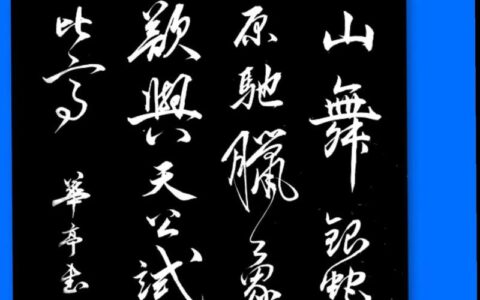 山舞銀蛇
原馳臘象
歘與天公試
比高
華亭書